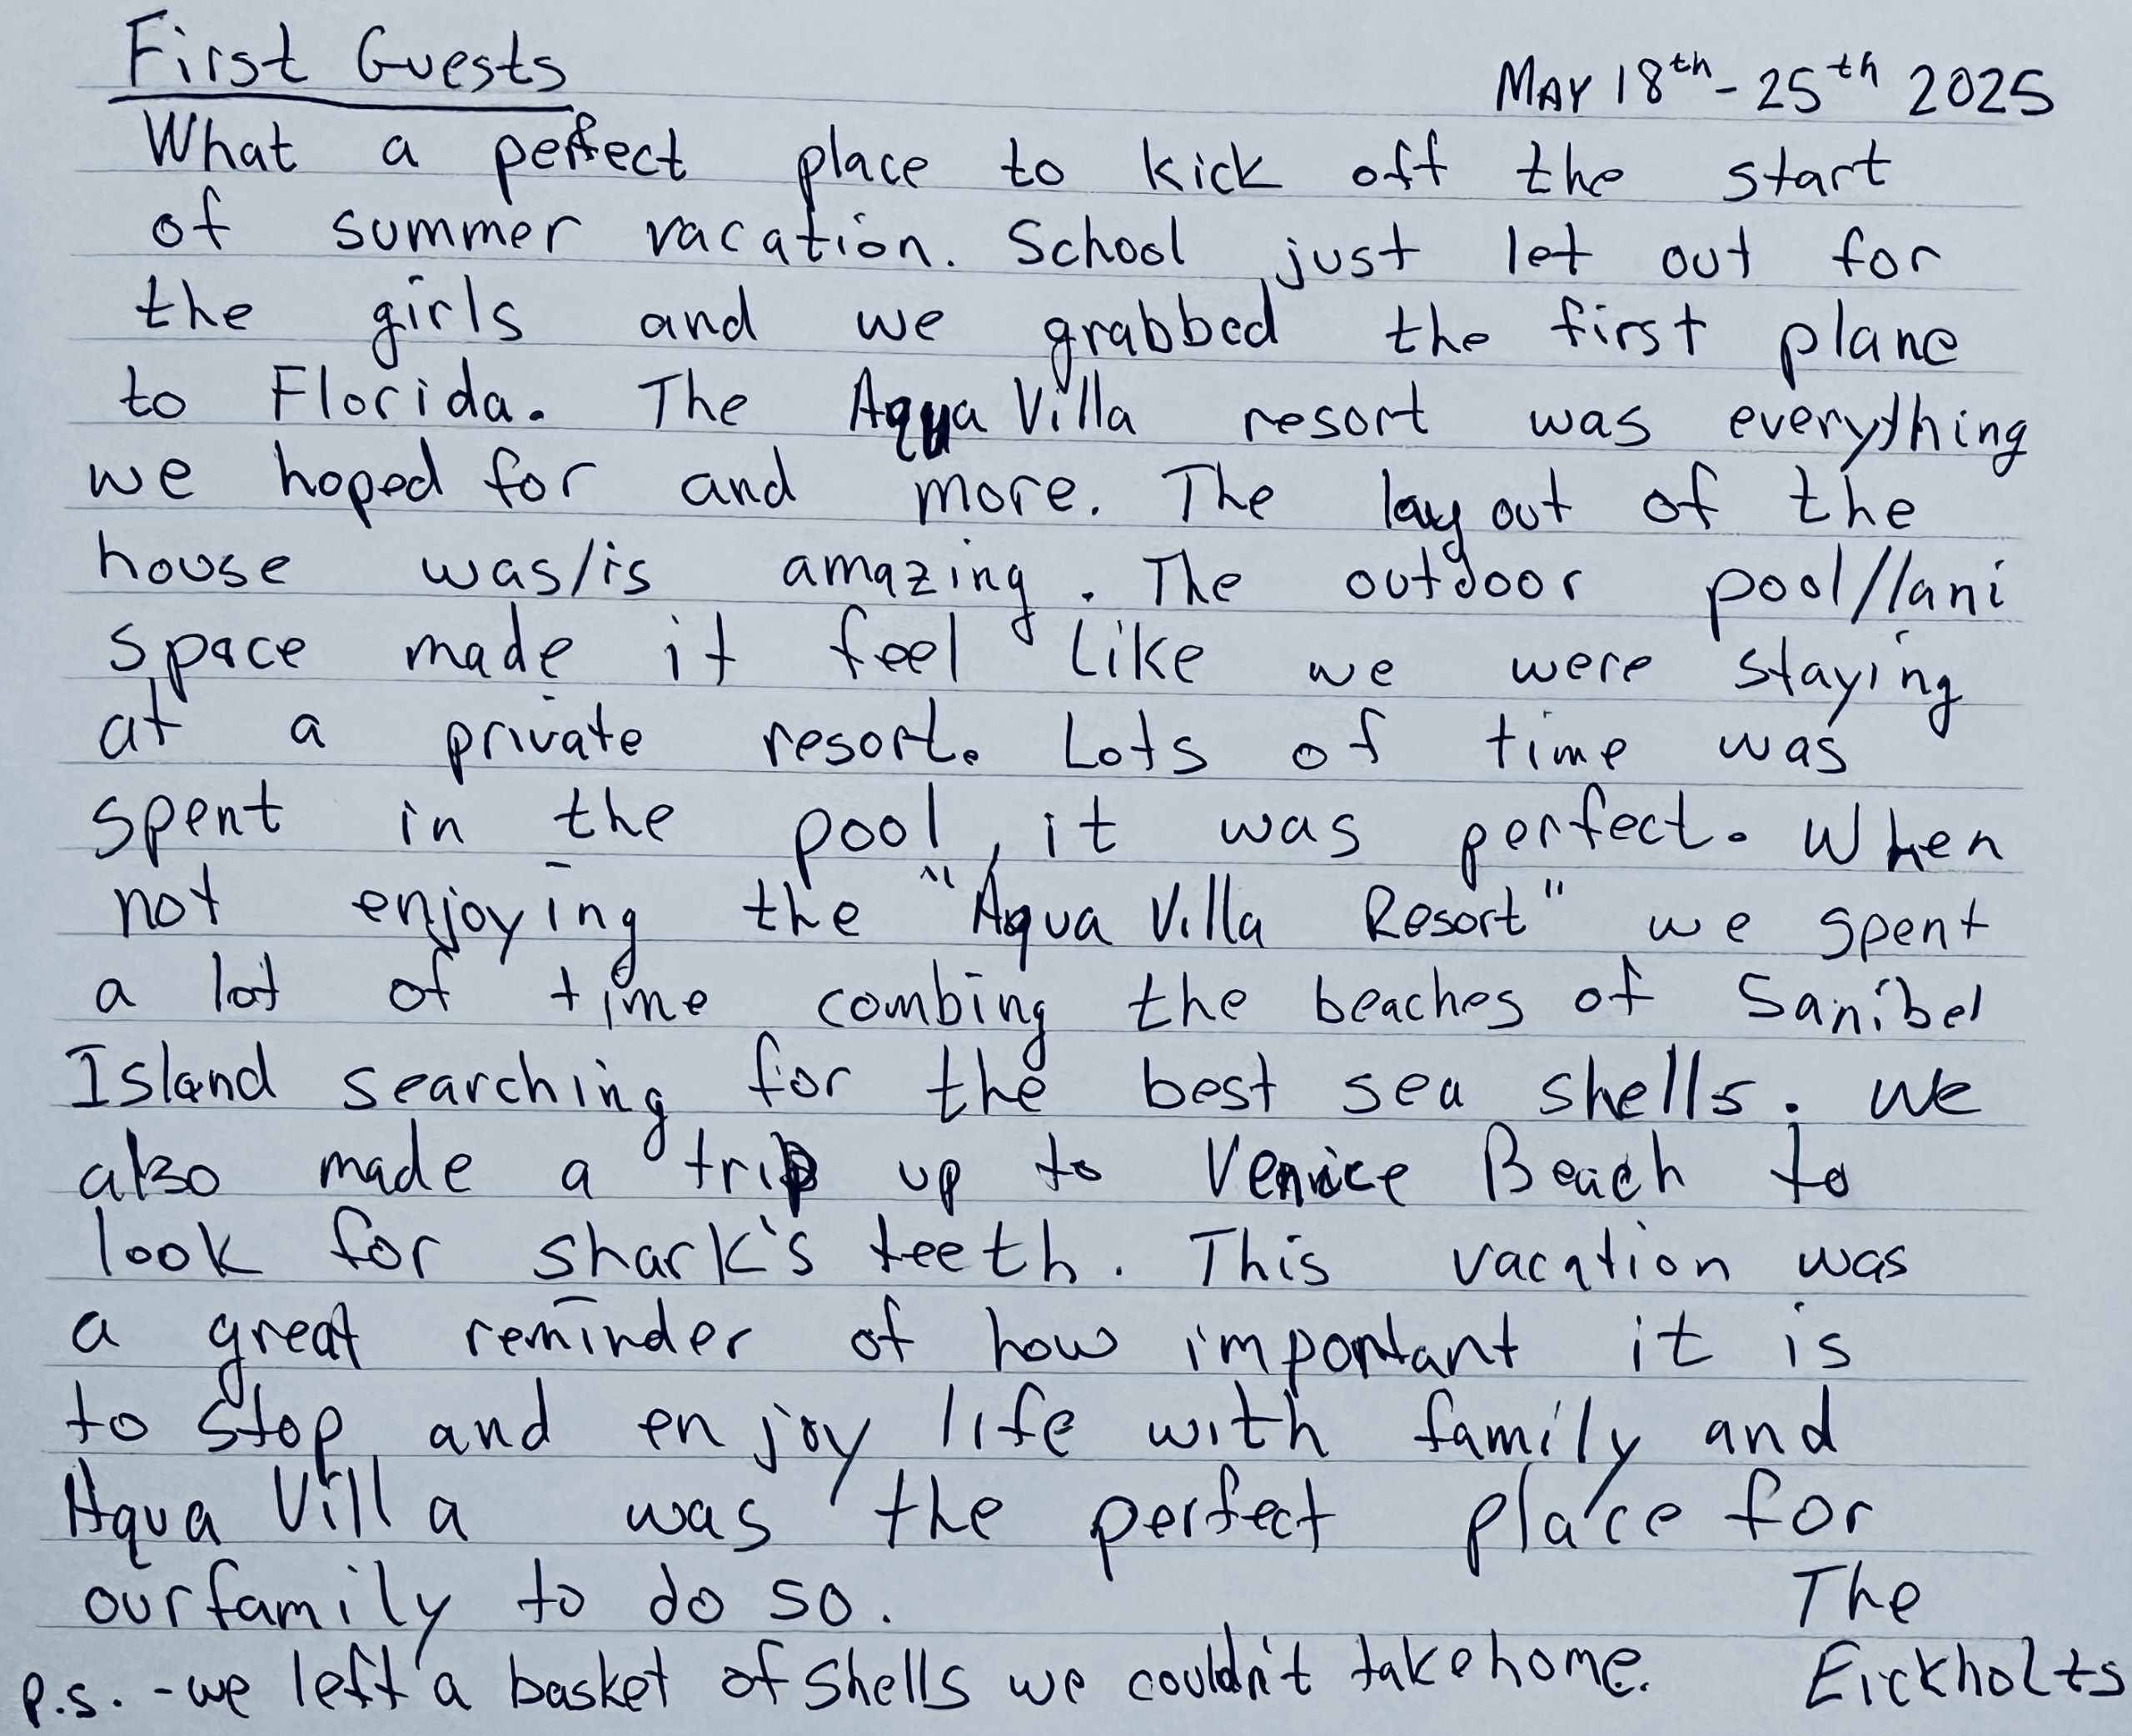 First Guests
May 18th - 25th 2025
What a perfect place to kick off the start
of summer vacation. School just let out for
the girls and we grabbed the first plane
to Florida. The Aqua Villa resort was everything
we hoped for and more. The layout of the
house was/is amazing. The outdoor pool/lani
space made it feel like we were staying
at a private resort. Lots of time was
spent in the pool, it was perfect. When
not enjoying the "Aqua Villa Resort" we spent
a lot of time combing the beaches of Sanibel
Island searching for the best sea shells. We
also made a trip up to Venice Beach to
look for shark's teeth. This vacation was
a great reminder of how important it is
to stop and enjoy life with family and
Aqua Villa was the perfect place for
our family to do so.
The
Eickholts
P.S. - we left a basket of shells we couldn't take home.